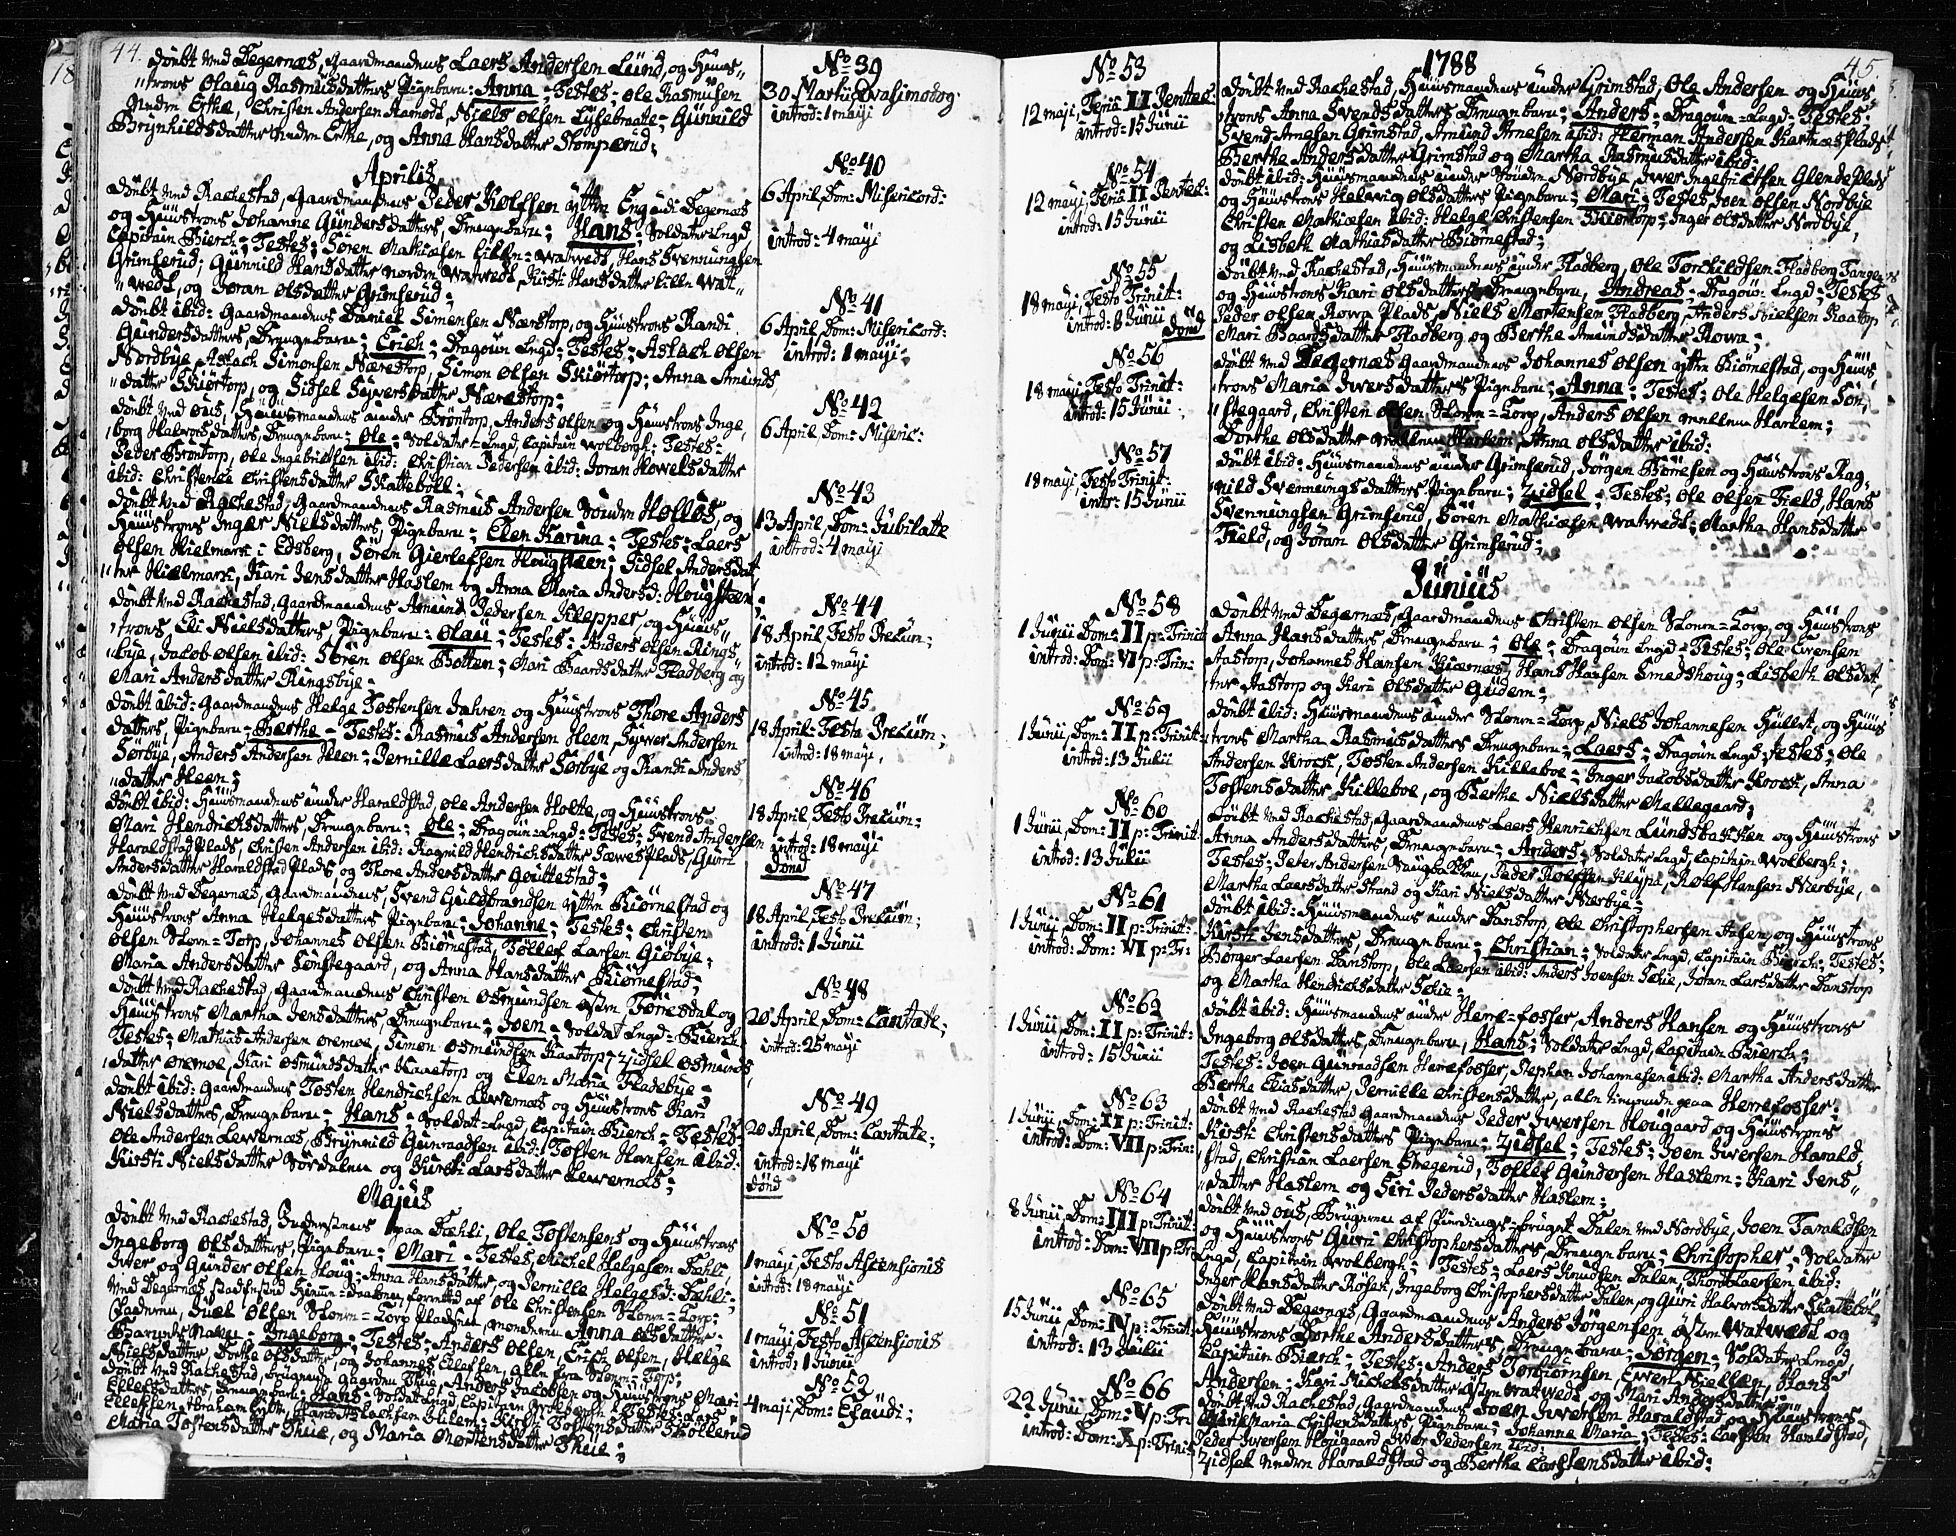 44.
döbt ved Degernæs, Gaardmandens Laers Andersen Lünd, og Hüus-
trves Olaüg Rasmusdatters Pigebarn: Anna; Testes: Ole Rasmüsen
Nedre Erthe, Christen Andersen Aamodt, Niels Olsen Lysebraate; Günnild
Brÿnhildsdatter Nedre Erthe, og Anna Hansdatter Stomperud;
Aprilis
döbt ved Rachestad, Gaardmandens Peder Rolfsen ÿttre Eng i Degernæs
og Hüustroes Johanne Gündersdatters, Drengebarn; Hans; Soldater Lægd
Capitain Bierch; Testes: Sören Mathiæsen Lille-Watwedt, Hans Svennungsen
Grimserud; Günnild Hansdatter Nordre Watwedt, Kirsti Hansdatter Lille Wat-
wedt, og Joran Olsdatter Grimserud;
döbt ibid: Gaardmandens Daniel Simensen Næstorp, og Hüustroes Randi
Gündersdatters, Drengebarn; Erich; Dragoun Lægd: Testes: Aslach Olsen
Nordbÿe, Aslach Simonsen Nærestorp, Simon Olsen Skiörtorp; Anna Amunds
datter Skiörtorp, og Sidsel Sÿwersdatter Nærestorp;
döbt ved Ous, Hüusmandens under Bröntorp, Anders Olsen og Hüustroes Inge
borg Halvorsdatters, Drengebarn; Ole; Soldater-Lægd, Capitain Wolbergh: Testes:
Peder Bröntorp, Ole Ingebrietsen ibid: Christian Pedersen ibid: Joran Howelsdatter
ibid: Christense Christensdatter Skatteböll;
döbt ved Rachestad, Gaardmandens Rasmus Andersen Söndre Holløs, og
Hüustroes Inger Nielsdatters, Pigebarn; Elen Karina; Testes: Laers
Olsen Hielmark i Edsberg, Sören Gierlefsen Hougsteen; Sidsel Andersdat
ter Hielmark, Kari Jensdatter Haslem og Anna Maria Andersd: Hougsteen;
döbt ved Rachestad, Gaardmandens Amund Pedersen Klepper, og Hüus
troes Eli Nielsdatters, Pigebarn: Olaü; Testes: Anders Olsen Rings-
bÿe, Jacob Olsen ibid: Sören Olsen Botten; Mari Baardsdatter Fladberg og
Mari Andersdatter Ringsbÿe;
döbt ibid: Gaardmandens Helge Tostensen Jahren og Hüustroes Thore Anders
datters, Pigebarn- Berthe- Testes: Rasmus Andersen Heen, Sÿwer Andersen
Sörbÿe, Anders Andersen Heen; Pernille Laersdatter Sörbÿe og Randi Anders
datter Heen;
döbt ibid: Hüusmandens under Haraldstad, Ole Andersen Holte, og Hüustroes
Mari Hendrichsdatters, Drengebarn; Ole; Dragoun-Lægd: Testes: Svend Andersen
Haraldstad Plads, Christen Andersen ibid: Ragnild Hendrichsdatter Tæwes Plads, Guri
Andersdatter Haraldstad Plads og Thore Andersdatter Gouttestad;
döbt ved Degernæs, Gaardmandens, Svend Guldbrandsen ÿttre Biörnestad og
Hüustroes Anna Helgesdatters Pigebarn; Johanne; Testes: Christen
Olsen Slorre-Torp, Johannes Olsen Biörnestad, Töllef Larsen Giölbÿe;
Maria Andersdatter Sönstegaard, og Anna Hansdatter Biörnestad;
döbt ved Rachestad, Gaardmandens Christen Osmundsen Östre Töresdal og
Hüustroes Martha Jensdatters, Drengebarn; Joen- Soldat Lægd- Bierch
Testes: Mathias Andersen Oremoe, Simen Osmundsen Kaatorp; Zidsel Osmunds
datter Oremoe, Kari Osmundsdatter Kaatorp og Elen Maria Fladebÿe;
döbt ibid: Gaardmandens Tosten Hendrichsen Lewernæs og Hüustroes Kari
Nielsdatters, Drengebarn- Hans; Soldat-Lægd, Capitain Bierch- Testes:
Ole Andersen Lewernæs, Brÿnnild Gunraadsen ibid: Tosten Hansen ibid:
Kirsti Nielsdatter Sördalen og Kirsti Larsdatter Lewernæs;
Majus
döbt ved Rachestad, paa Fæhli, Ole Tostensens og Hüustroes
Ingeborg Olsdatters, Pigebarn; Mari- Testes, Michel Helgesen Fæhli,
Iwer og Günder Olsen Houg; Anna Hansdatter, og Pernille Helgesd: Fæhli;
ved Degernæs stadfestend Hiemme-Daaben, forrettet af Ole Christensen Slorre-Torp;
Faderen, Juel Olsen Slorre-Torp Pladsen, moderen Anna Olsdatter-
Barnets Navn- Ingeborg; Testes: Anders Olsen, Erich Olsen, Helge
Nielsdatter, Dorthe Olsdatter, og Johannes Ellefsen, alle fra Slorre-Torp;
döbt ved Rachestad, Gaarden Thüe, Anders Jacobsen og Hüustroes Mari
Ellefsdatters, Drengebarn: Hans- Soldat Lægd, Capitain Wolbergh; Testes: Lars
Ellefsen, Abraham, Hans Aslachsen Hilem- Kirsti Tostensdatter Skollerud
Maria Tostensdatter Thüe, og Maria Mortensdatter Thüe;
No 39
30 Martii Qvasimodog:
introd: 1 mayi
No 40
6 April, Dom: Misericord:
introd: 4 mayi
No 41
6 April, Dom: Misericord:
introd: 1 mayi;
No 42
6 April, Dom: Miseric:
No 43
13 April, Dom: Jubilatte
introd: 4 mayi
No 44
18 April, Festo Precum;
introd: 12 mayi
No 45
18 April- Festo Precum;
introd: 18 mayi,
No 46
18 April Festo Precum;
introd: 18 mayi
Död
No 47
18 April, Festo Precum;
introd: 1 Junii
No 48
20 April, Dom: Cantate;
introd: 25 mayi
No 49
20 April, Dom: Cantate;
introd: 18 mayi
död
No 50
1 mayi, Festo Ascensionis
introd: 18 mayi
No 51
1 mayi, Festo Ascensionis
introd: 1 Junii
No 52
4 maji, Dom: Exaudi;
No 53
12 maji, Feria II Pentec:
introd: 15 Junii
No 54
12 mayi, Feria II Pentec:
introd: 15 Junii
No 55
18 mayi, Festo Trinit:
introd: 8 Junii
död
No 56
18 mayi, Festo Trinit:
introd: 15 Junii;
No 57
18 mayi, Festo Trinit:
intr: 15 Junii
No 58
1 Junii, Dom: II p: Trinit
introd: Dom: VI p: Trin:
No 59
1 Junii, Dom: II p: Trinit:
introd: 13 Julii
No 60
1 Junii, Dom: II p: Trinit:
introd: 13 Julii
No 61
1 Junii, Dom: II p: Trinit:
introd: Dom: VI p: Tr:
No 62
1 Junii, Dom: II p: Trinit:
introd: 15 Junii
No 63
1 Junii, Dom: II p: Trinit:
introd: Dom: VII p: Trin:
No 64
8 Junii, Dom: III p: Trinit:
introd: Dom: VII p: Tr:
No 65
15 Junii, Dom: IV p: Trinit:
introd: 13 Julii
No 66
22 Junii, Dom: V p: Tri
introd: Dom: X p: Trin:
1788
45.
döbt ved Rachestad, Hüusmandens under Grimstad, Ole Andersen og Hüus
troes Anna Svendsdatters Drengebarn; Anders- Dragoun-Lægd- Testes:
Svend Arnesen Grimstad, Amund Arnesen ibid: Herman Andersen Kartnæs Plads
Berthe Andersdatter Grimstad og Martha Rasmusdatter ibid:
döbt ibid: Hüusmandens under Söndre Nordbÿe, Iwer Ingebrietsen Glende Plads
og Hüustroes Helwig Olsdatters Pigebarn; Mari; Testes Joen Olsen Nordbÿe
Christen Mathiæsen ibid: Helge Christensen Skiörtorp; Inger Olsdatter Nordbÿe,
og Lisbeth Mathiasdatter Biörnestad;
döbt ved Rachestad, Hüusmandens under Fladberg, Ole Torchildsen Fladberg Tangen
og Hüustroes Kari Olsdatters Drengebarn, Andreas- Dragou: Lægd- Testes
Peder Olsen Rowa Plads, Niels Mortensen Fladberg, Anders Nielsen Kaatorp
Mari Baardsdatter Fladberg og Berthe Amundsdatter Rowa;
döbt ved Degernæs Gaardmandens Johannes Olsen ÿttre Biörnestad, og Hüus
troes Maria Iwersdatters Pigebarn; Anna; Testes: Ole Helgesen Sön,
steggaard, Christen Olsen Slorre-Torp, Anders Olsen mellem Harlem;
Dorthe Olsdatter mellem Harlem, Anna Olsdatter ibid:
döbt ibid: Hüusmandens under Grimserud, Jörgen Börresen og Hüustroes Rag-
nild Svennungsdatters Pigebarn; Zidsel; Testes: Ole Olsen Field, Hans
Svennungsen Grimserud, Sören Mathiæsen Watwedt; Martha Hansdatter
Field, og Joran Olsdatter Grimserud;
Junius
döbt ved Degernæs, Gaardmandens Christen Olsen Slorre-Torp, og Hüustroes
Anna Hansdatters, Drengebarn; Ole; Dragoun Lægd- Testes: Ole Evensen
Aastorp, Johannes Hansen Kiærnæs, Hans Hansen Smedshoug; Lisbeth Olsdat
ter Aastorp og Kari Olsdatter Gudem;
döbt ibid: Hüusmandens under Slorre-Torp, Niels Johannesen Hullet, og Hüus
troes Martha Rasmusdatters Drengebarn; Laers; Dragoun Lægd; Testes: Ole
Andersen Kroos, Tosten Andersen Killeboe- Inger Jacobsdatter Kroos, Anna
Tostensdatter Killeboe, og Berthe Nielsdatter Mellegaard;
döbt ved Rachestad, Gaardmandens Laers Henrichsen Lundsbacken og Hüustroes
Anna Andersdatters, Drengebarn; Anders; Soldater Lægd, Capitain Wolbergh;
Testes: Peter Andersen Saugbakken, Peder Rolfsen Kleÿpa, Rolf Hansen Nierbÿe,
Martha Laersdatter Strand og Kari Nielsdatter Nierbÿe;
döbt ibid: Hüusmandens under Danstorp, Ole Christophersen Aasen, og Hüustroes
Kirsti Jensdatters, Drengebarn; Christian; Soldater Lægd, Capitain Bierch: Testes:
Börger Laersen Danstorp, Ole Laersen ibid: Anders Joensen Ickie, Joran Larsdatter Danstorp
og Martha Hendrichsdatter Ickie;
döbt ibid: Hüusmandens under Herre-fosser, Anders Hansen og Hüustroes
Ingeborg Olsdatters, Drengebarn, Hans; Soldater Lægd, Capitain Bierch;
Testes: Joen Gunraadsen Herrefosser, Stephan Johannesen ibid: Martha Andersdatter
Berthe Eliasdatter, Pernille Christensdatter, alle hiemme paa Herrefosser:
döbt ved Rachestad Gaardmandens Peder Iwersen Hougaard og Hüustroes
Kirsti Christensdatters Pigebarn; Zidsel; Testes: Joen Iwersen Harald
stad, Christian Laersen Stegerud, Tollef Gundersen Haslem: Kari Jens-
datter Haslem og Siri Pedersdatter Haslem;
döbt ved Ous, Brugeren af Fierdings-bruget Dalen ved Nordbÿe, Joen Taraldsen
og Hüustroes Guri Christophersdatters, Drengebarn; Christopher, Soldater
Lægd, Capitain Wolbergh- Testes; Laers Knudsen Dalen, Thord Laersen ibid:
Inger Hansdatter Rosek, Ingeborg Christophersdatter Dalen, og Guri Halvorsdatter Skateböl,
döbt ved Degernæs, Gaardmandens Anders Jörgensen Östre Watwedt og
Hüustroes Dorthe Andersdatters, Drengebarn; Jörgen; Soldater Lægd
Capitain Bierch- Testes: Anders Torbiörnsen, Ewen Kiellen, Hans
Andersen: Kari Michelsdatter Östre Watwedt og Mari Andersdatter
döbt ved Rachestad, Gaardmandens Joen Iwersen Haraldstad og Hüustroes
Maria Christensdatters, Pigebarn; Johanne Maria; Testes: Carsten Haraldstad,
Peder Iwersen Hougaard, Iwer Pedersen ibid:
Zidsel Nedre Haraldstad og Berthe Carstensdatter ibid: